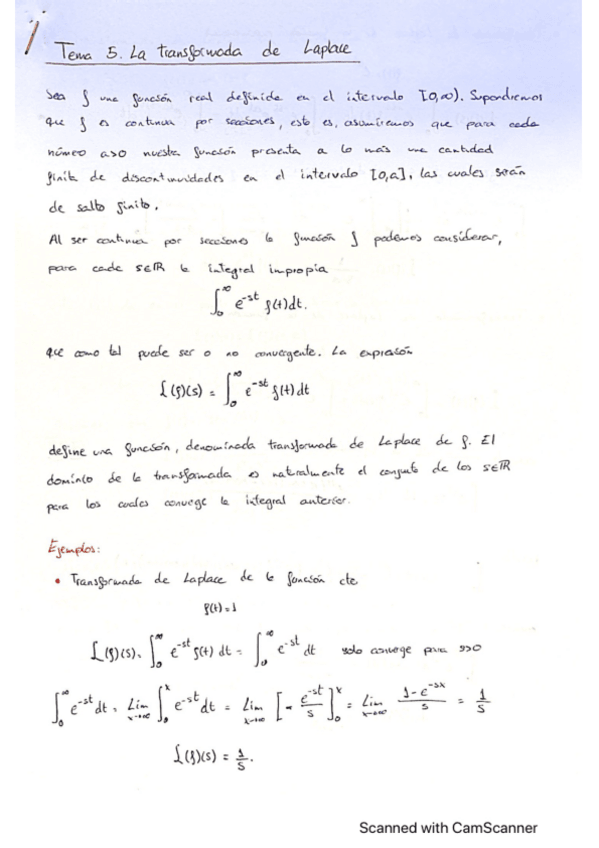 Tema 5. La transformada de Laplace
Sea f una función real definida en el intervalo [0,∞). Supondremos
que f es continua por secciones, esto es, asumiremos que para cada
número a>0 nuestra función presenta a lo más una cantidad
finita de discontinuidades en el intervalo [0,a], las cuales serán
de salto finito.
Al ser continua por secciones la función f podemos considerar,
para cada s∈ℝ la integral impropia
∫₀^∞ e^-st f(t)dt.
que como tal puede ser o no convergente. La expresión
L(f)(s) = ∫₀^∞ e^-st f(t)dt
define una función, denominada transformada de Laplace de f. El
dominio de la transformada es naturalmente el conjunto de los s∈ℝ
para los cuales converge la integral anterior.
Ejemplos:
• Transformada de Laplace de la función cte
f(t)=1
L(f)(s) = ∫₀^∞ e^-st f(t) dt = ∫₀^∞ e^-st dt solo converge para s>0
∫₀^∞ e^-st dt = Lim x→∞ ∫₀^x e^-st dt = Lim x→∞ [- e^-st/s]₀^x = Lim x→∞ (1-e^-sx)/s = 1/s
L(f)(s) = 1/s.
Scanned with CamScanner